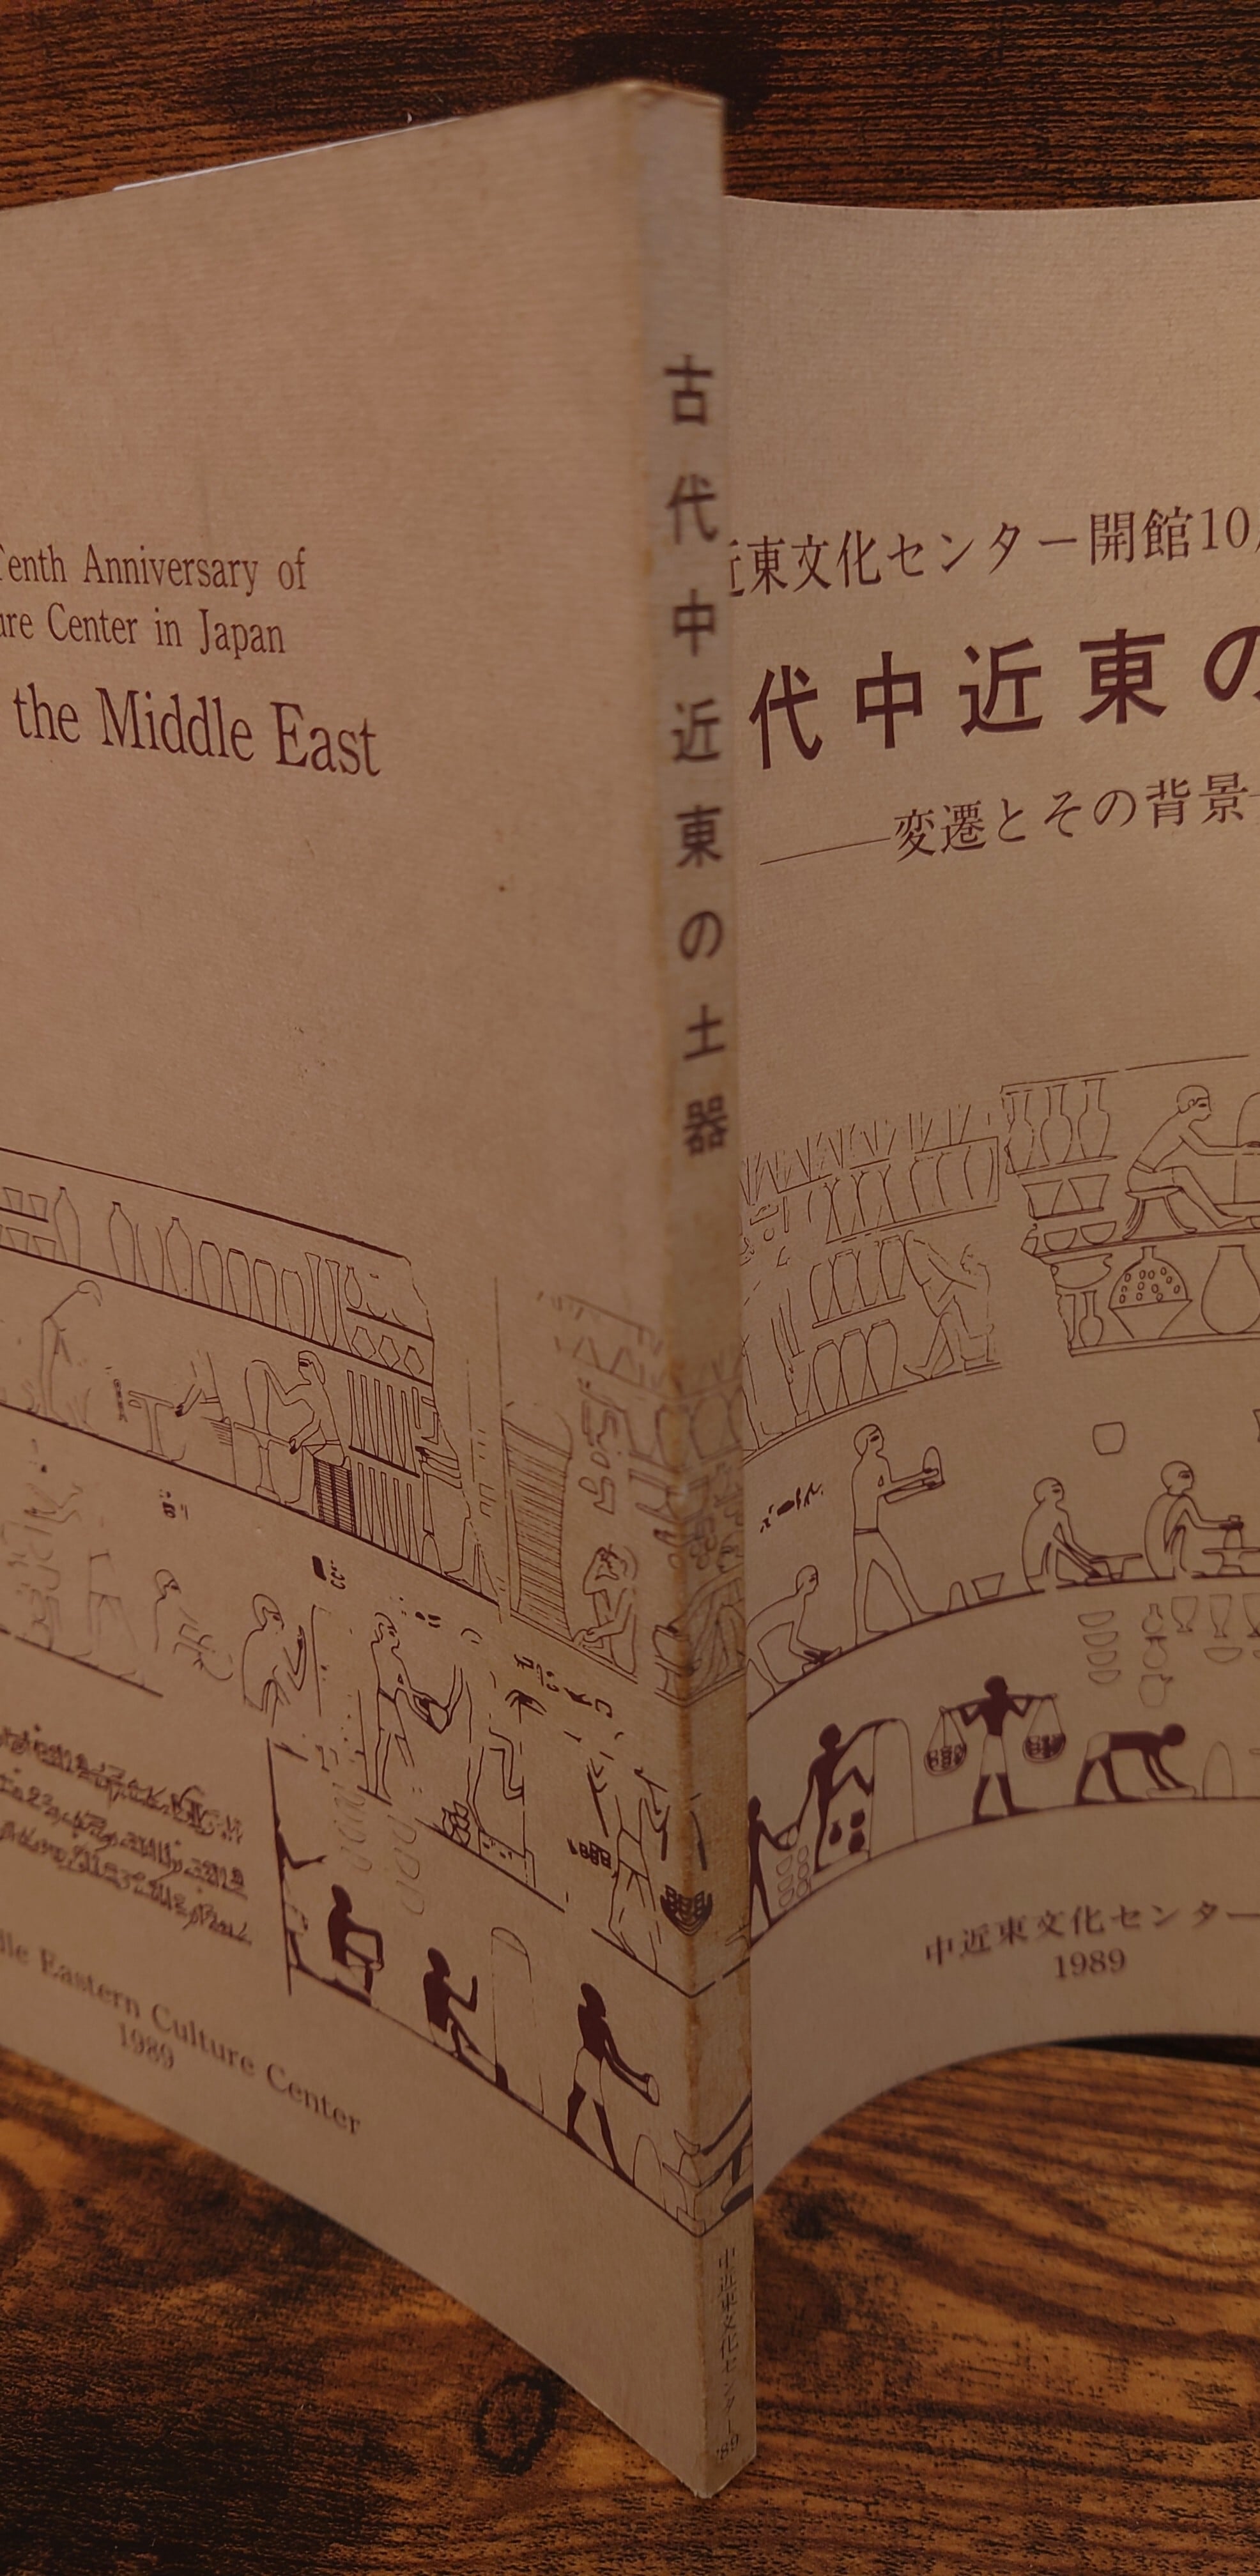 Tenth Anniversary of
ure Center in Japan
the Middle East
dle Eastern Culture Center
1989
古代中近東の土器
中近東文化センター '89
近東文化センター開館10
代中近東の
——変遷とその背景—
中近東文化センター
1989